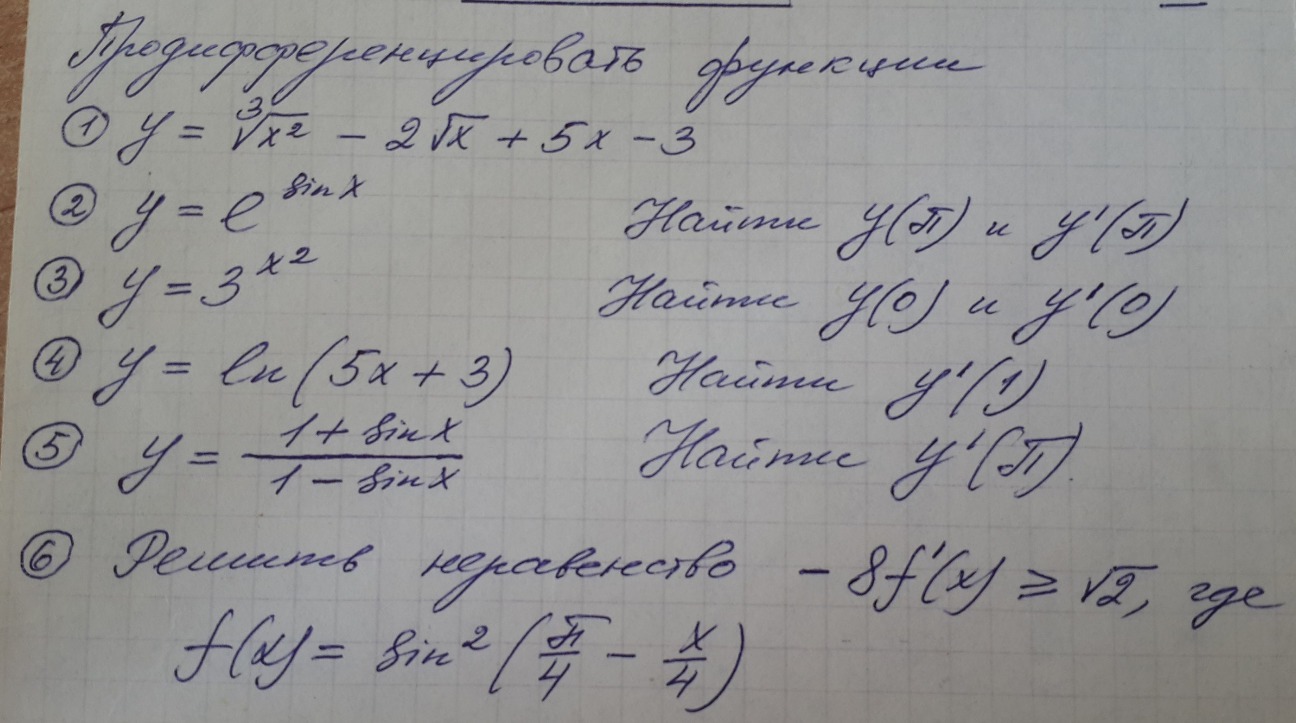 Продифференцировать функции
① y = ∛x² − 2√x + 5x − 3
② y = e^{sin x} Найти y(π) и y'(π)
③ y = 3^{x²} Найти y(0) и y'(0)
④ y = ln(5x + 3) Найти y'(1)
⑤ y = (1 + sin x)/(1 − sin x) Найти y'(π).
⑥ Решить неравенство − 8f'(x) ≥ √2, где
f(x) = sin²(π/4 − x/4)